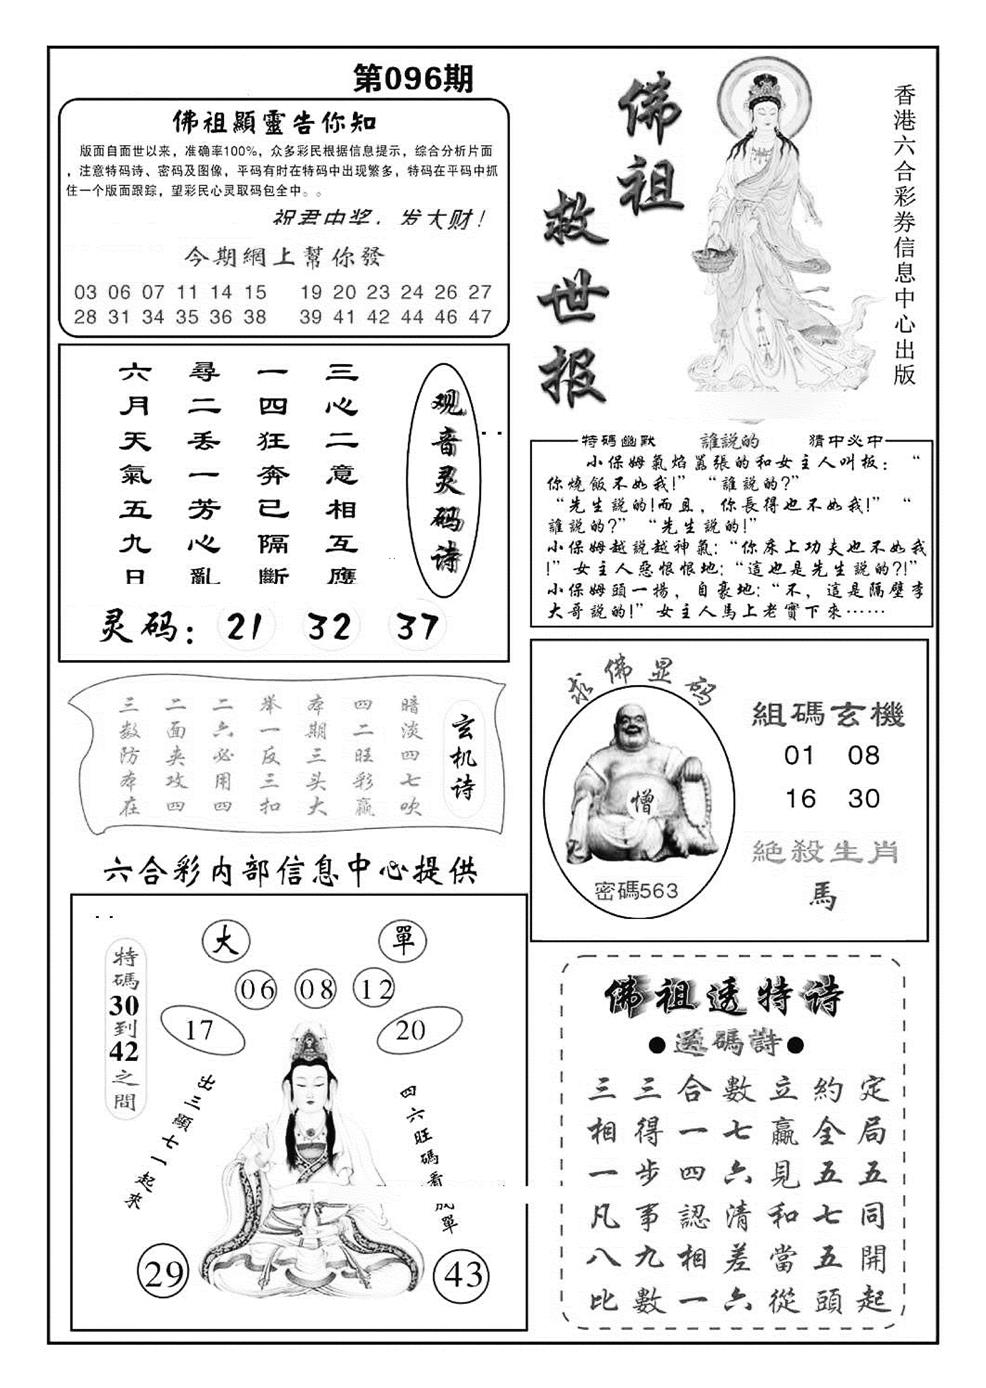 第096期
佛祖顯靈告你知
版面自面世以来，准确率100%，众多彩民根据信息提示，综合分析片面
，注意特码诗、密码及图像，平码有时在特码中出现繁多，特码在平码中抓
住一个版面跟踪，望彩民心灵取码包全中。。
祝君中奖，发大财！
今期網上幫你發
03 06 07 11 14 15 19 20 23 24 26 27
28 31 34 35 36 38 39 41 42 44 46 47
佛祖
救世报
香港六合彩券信息中心出版
观音灵码诗
三心二意相互應
一四狂奔已隔斷
尋二丢一芳心亂
六月天氣五九日
灵码：21 32 37
特碼幽默 誰説的 猜中必中
小保姆氣焰囂張的和女主人叫板：“
你燒飯不如我!” “誰説的?”
“先生説的!而且，你長得也不如我!” “
誰説的?” “先生説的!”
小保姆越説越神氣:“你床上功夫也不如我
!” 女主人惡恨恨地:“這也是先生説的?!”
小保姆頭一揚，自豪地:“不，這是隔壁李
大哥説的!” 女主人馬上老實下來……
玄机诗
暗淡四七吹
四二旺彩赢
本期三头大
举一反三扣
二六必用四
二面夹攻四
三数防本在
六合彩内部信息中心提供
求佛显码
憎
密碼563
組碼玄機
01 08
16 30
絶殺生肖
馬
特碼30到42之間
大 單
06 08 12
17 20
出三顯七一起來
四六旺碼看 單
29 43
佛祖透特诗
●透碼詩●
三三合數立約定
相得一七贏全局
一步四六見五五
凡事認清和七同
八九相差當五開
比數一六從頭起